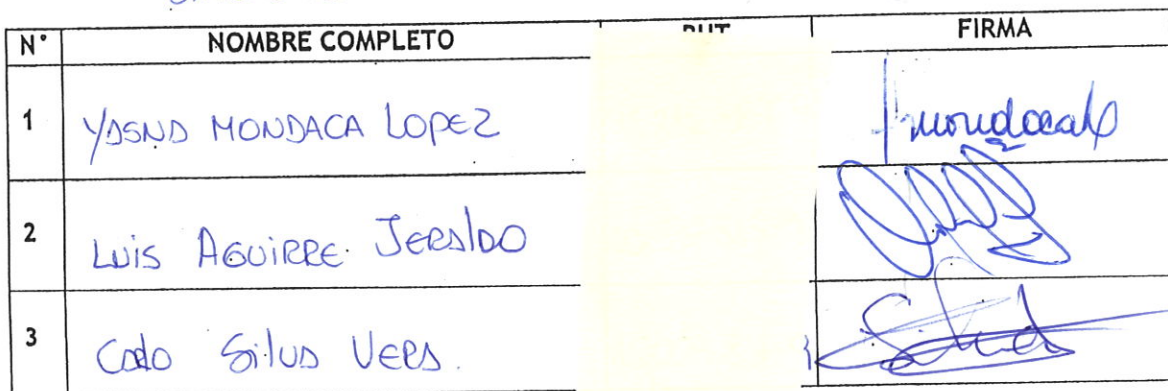 N° NOMBRE COMPLETO RUT FIRMA
1 YASNA MONDACA LOPEZ
2 LUIS AGUIRRE JERALDO
3 SILVA VERA